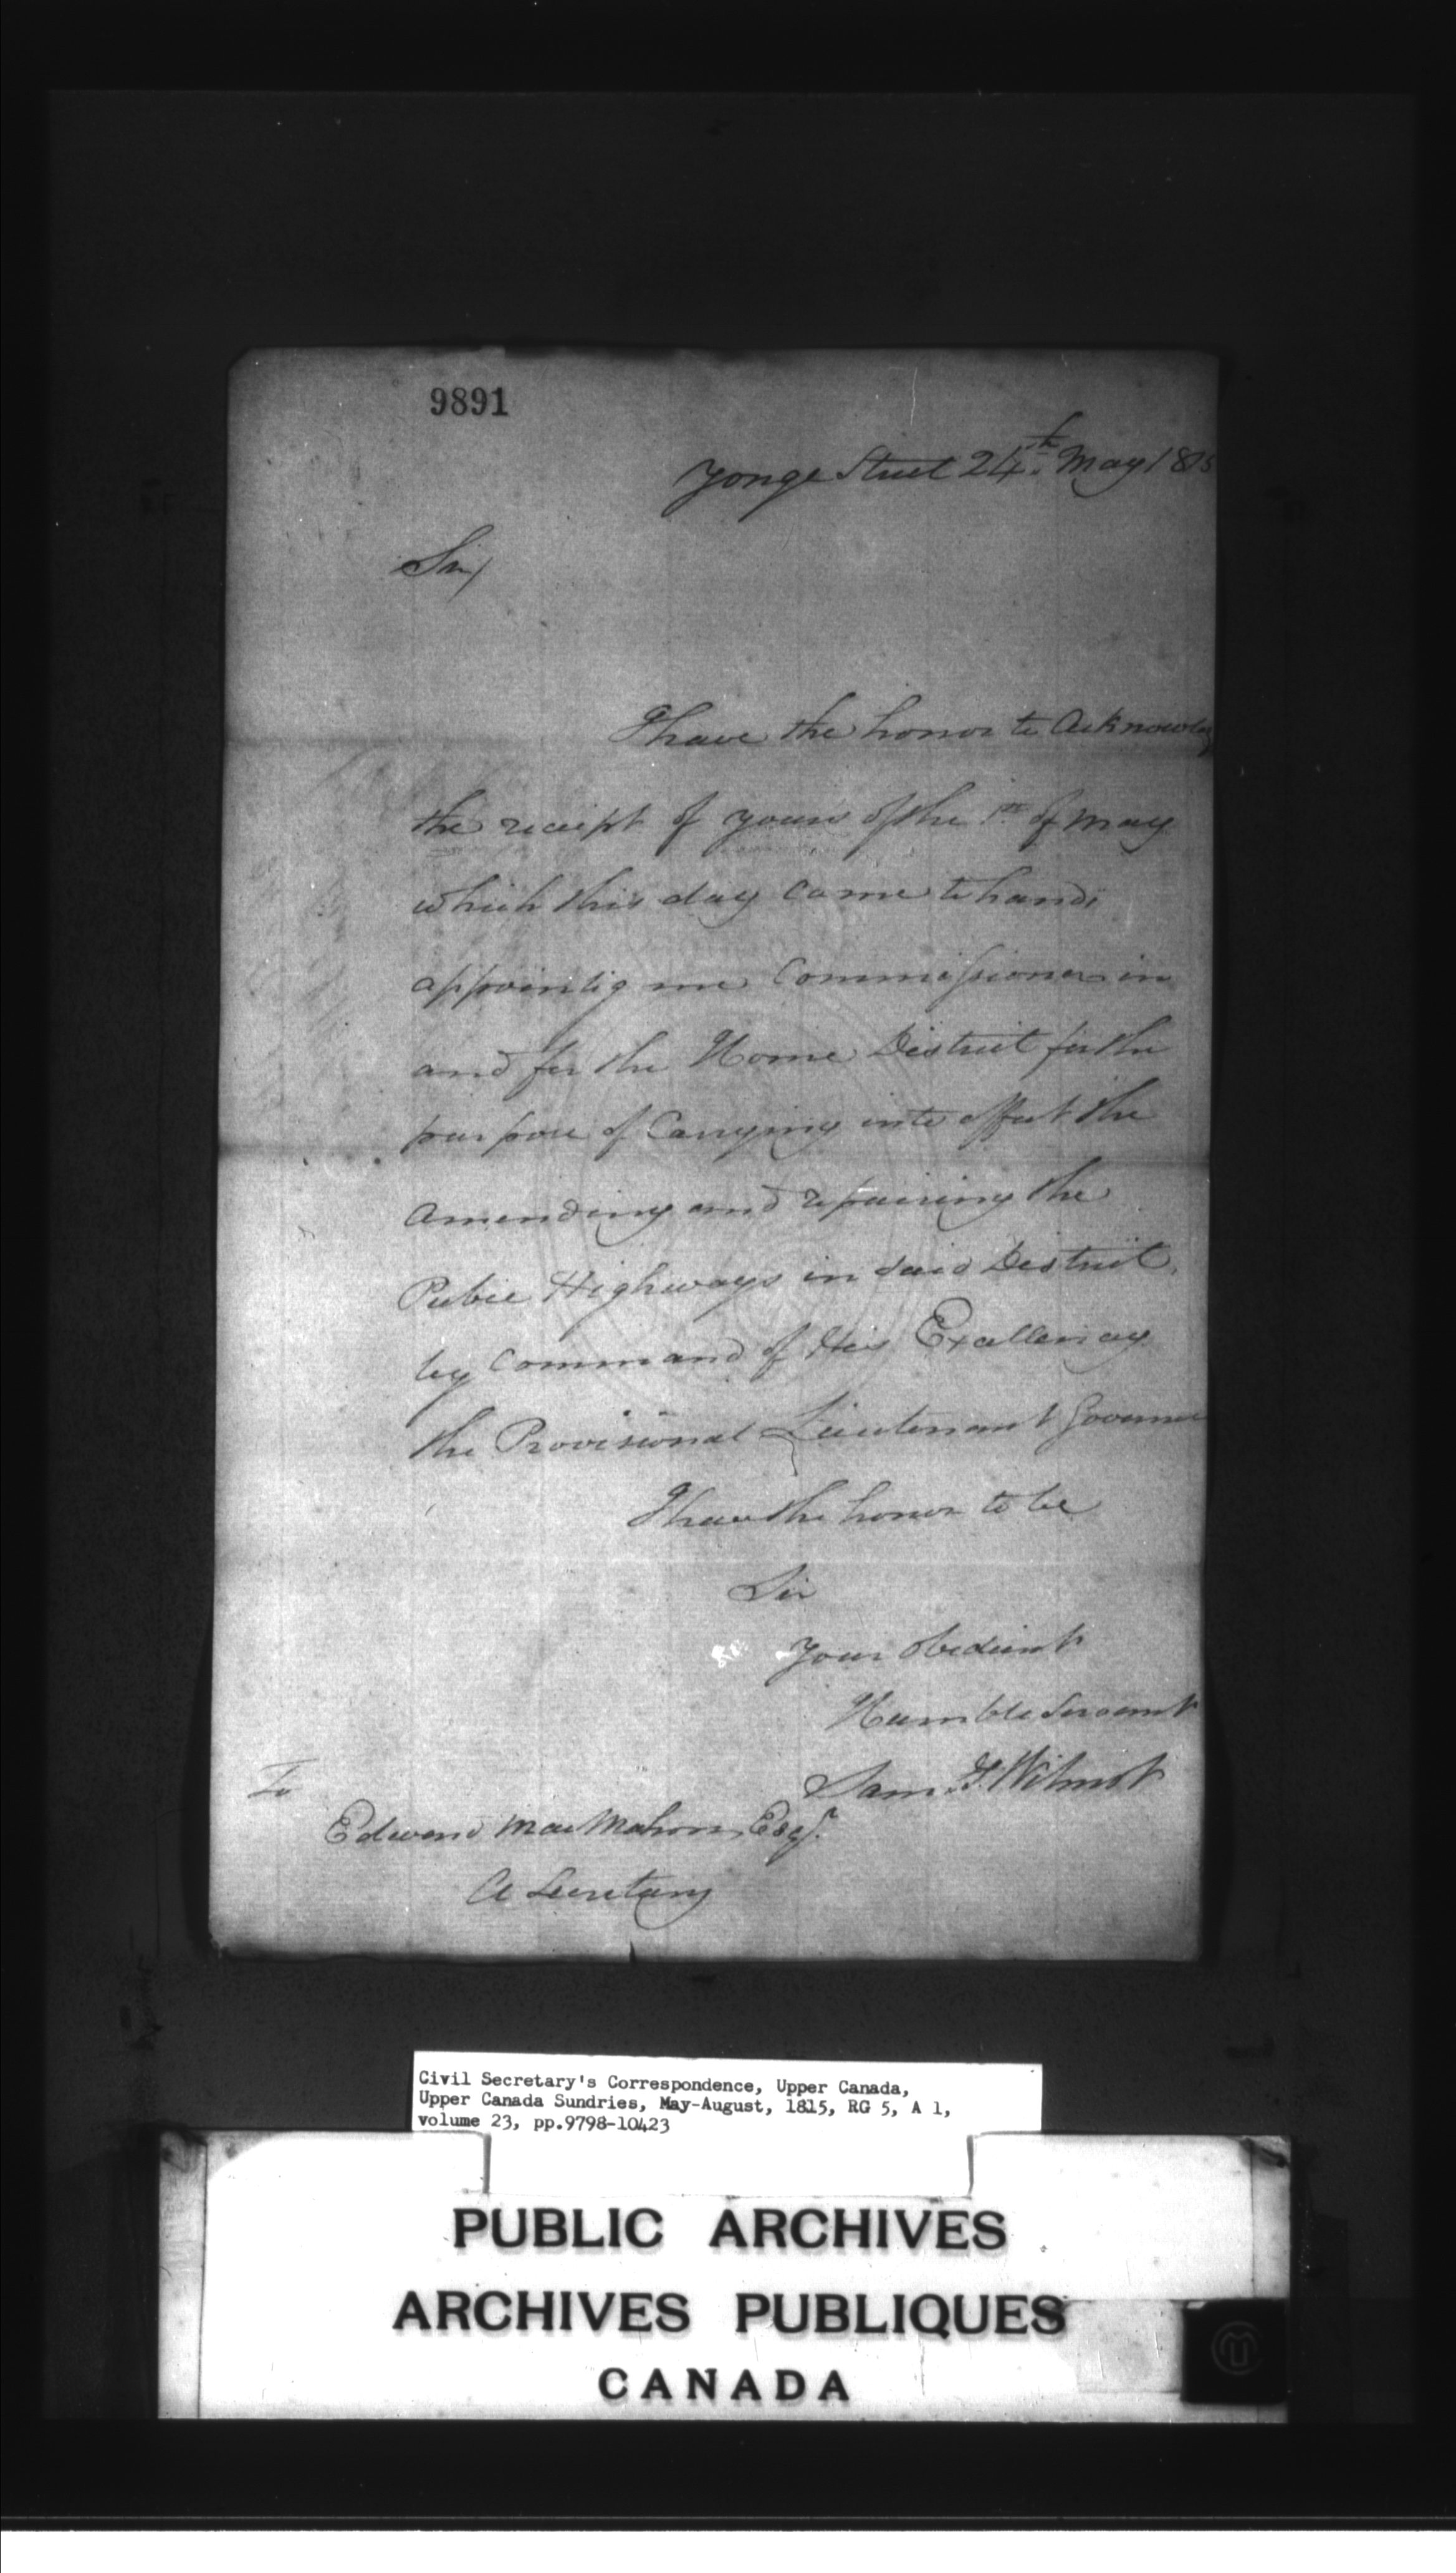 9891
Yonge Street 24th May 1815
Sir/
I have the honor to Acknowledg
the receipt of yours of the 1st of May
which this day Came to hand,
appointig me Commissioner in
and for the Home District for the
purpose of Carrying into effect the
Amending and repairing the
Pubic Highways in said District,
by Command of His Excellency
the Provisional Lieutenant Governor
I have the honor to be
Sir
Your obedient
Humble Servant
Sam. S. Wilmot
To
Edward MacMahon, Esqr.
A Secretary
Civil Secretary's Correspondence, Upper Canada,
Upper Canada Sundries, May-August, 1815, RG 5, A 1,
volume 23, pp.9798-10423
PUBLIC ARCHIVES
ARCHIVES PUBLIQUES
CANADA